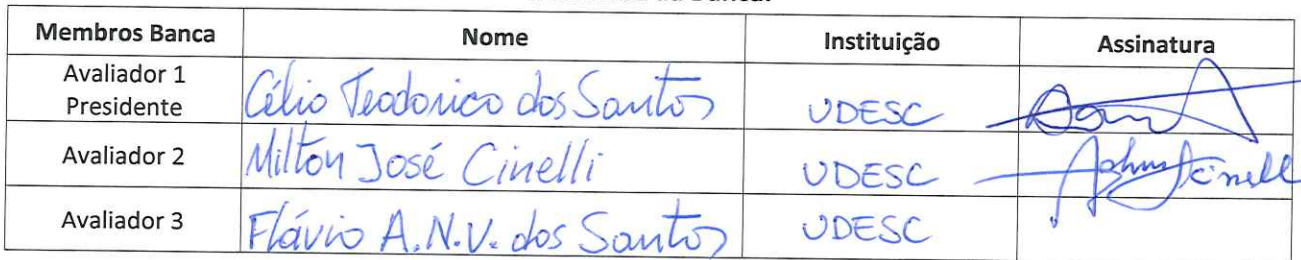 Membros Banca Nome Instituição Assinatura
Avaliador 1
Presidente Célio Teodorico dos Santos UDESC
Avaliador 2 Milton José Cinelli UDESC
Avaliador 3 Flávio A.N.V. dos Santos UDESC